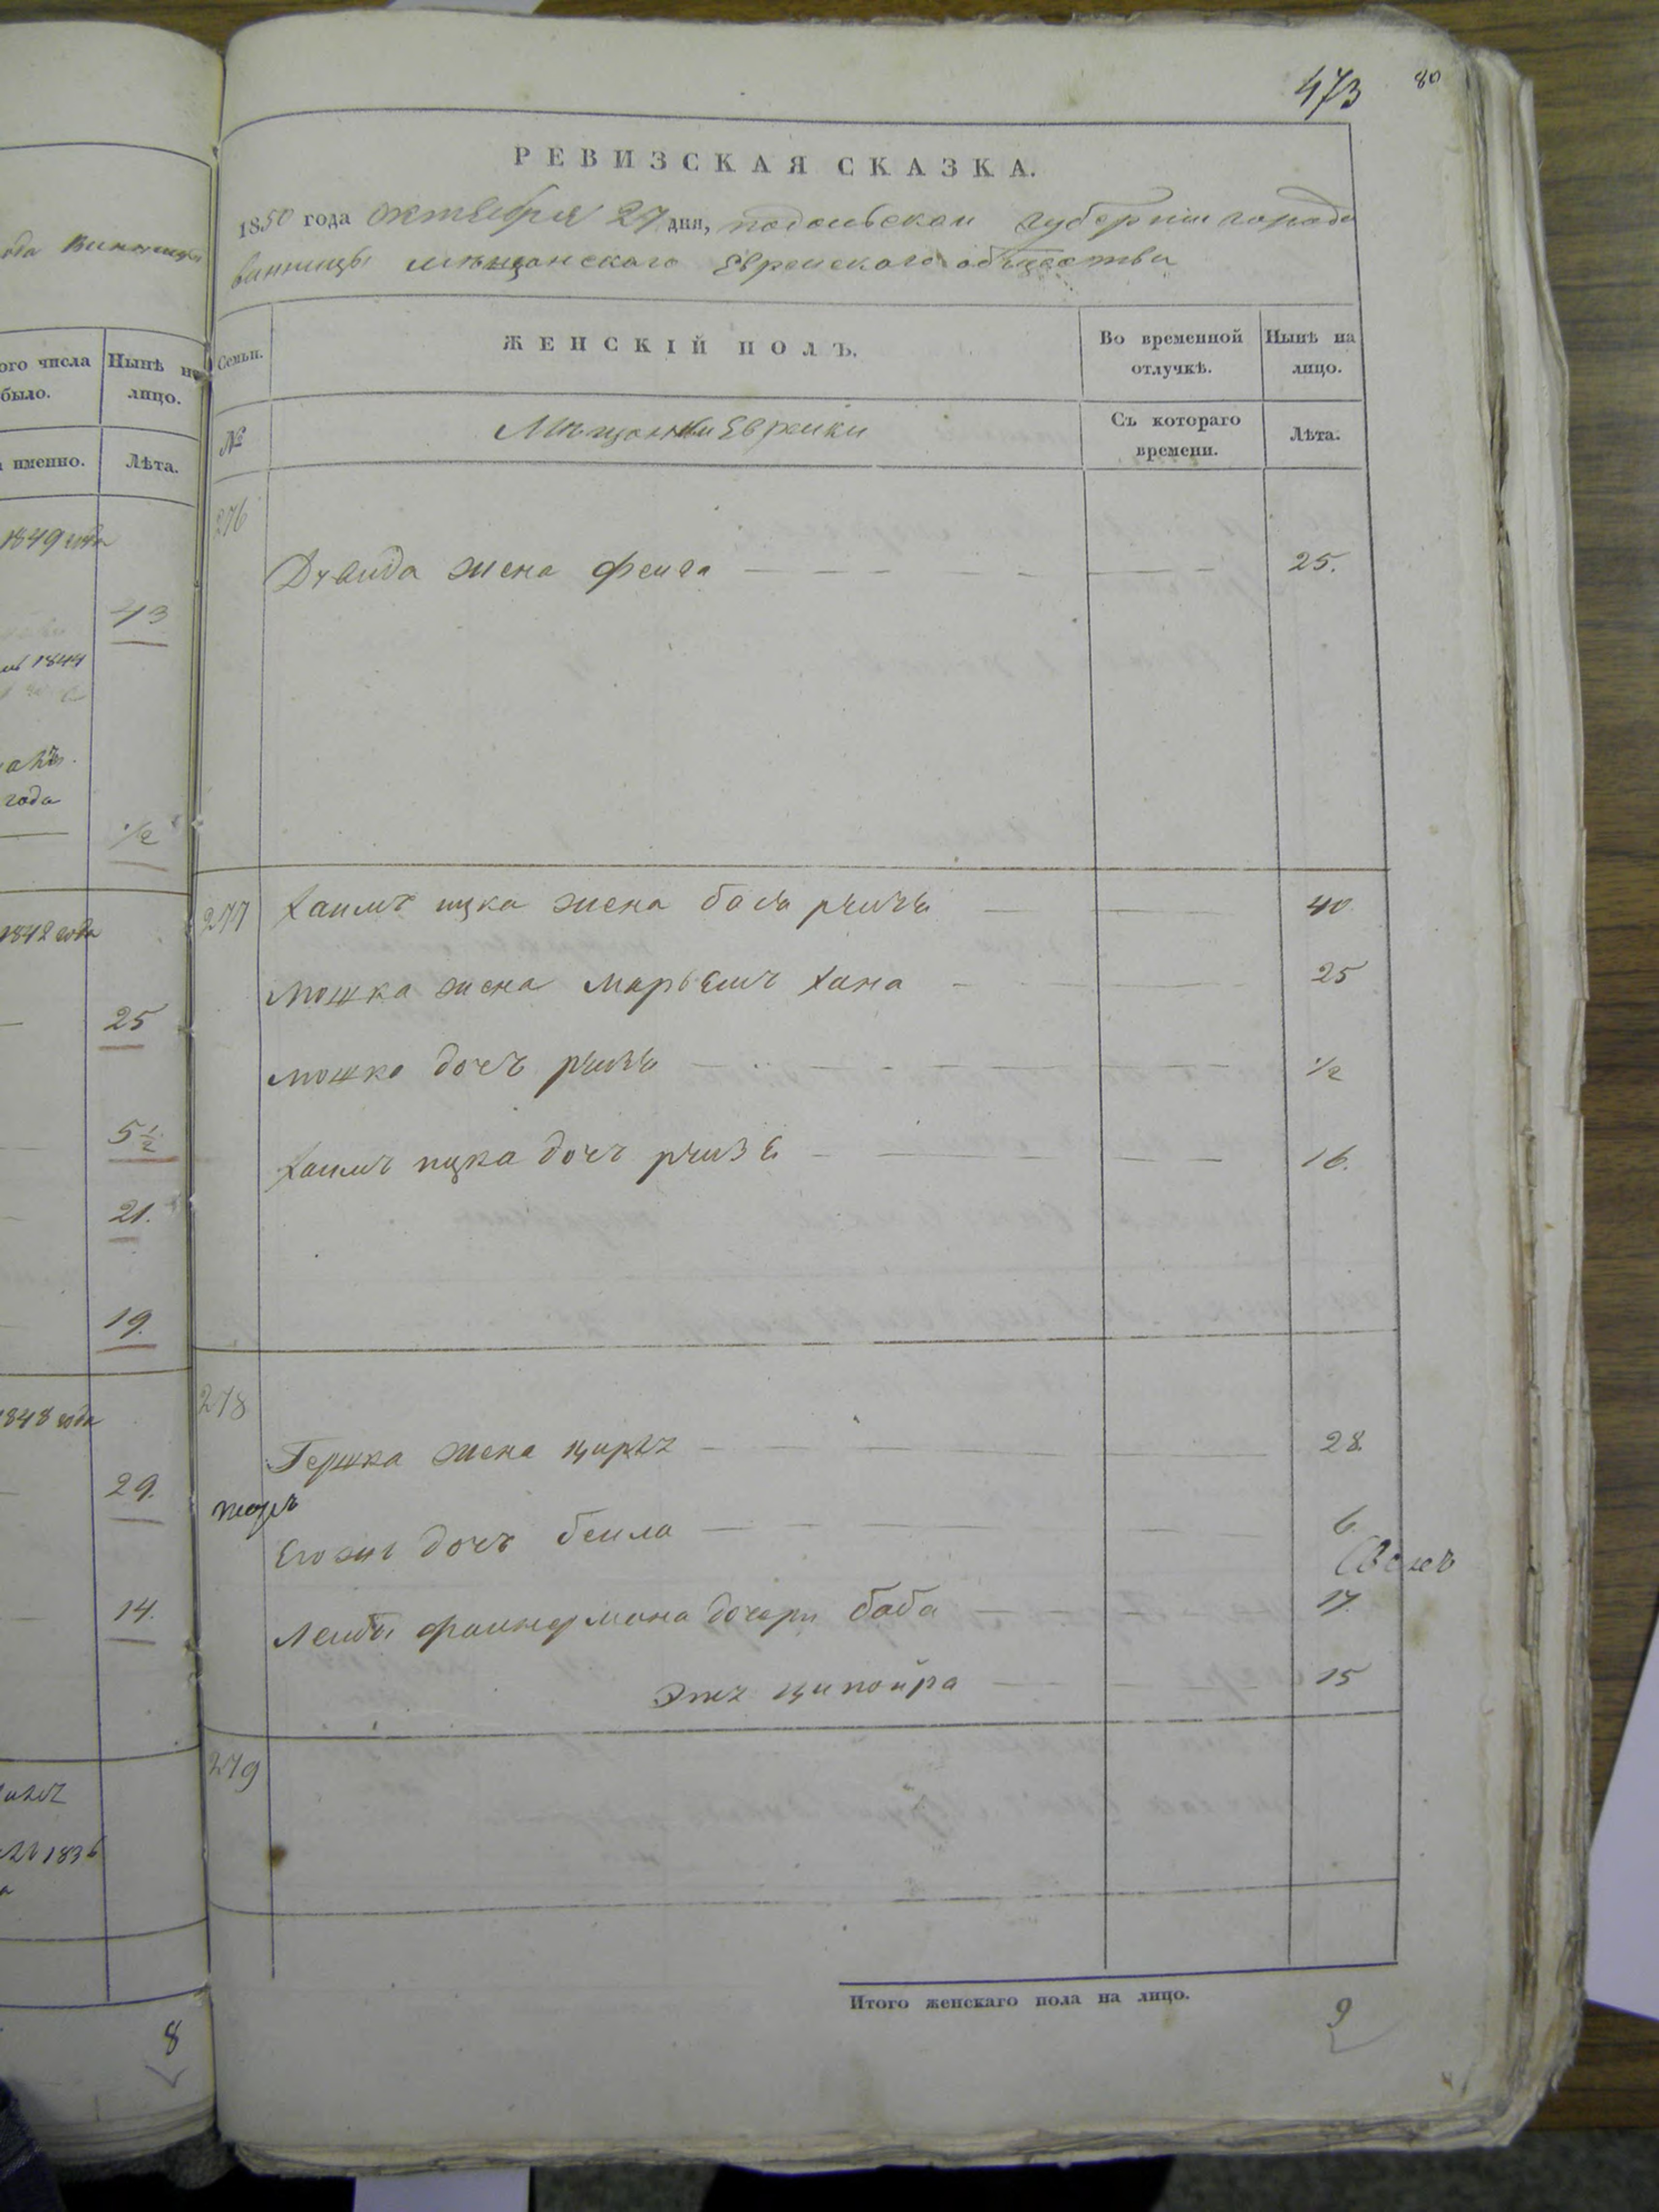 473 80
РЕВИЗСКАЯ СКАЗКА.
1850 года октября 27 дня, подольской губернии города
винницы мѣщанскаго Еврейскаго общества
ода Винницы
ого числа
было.
Нынѣ на
лицо.
именно.
Лѣта.
1849 года
43
1844
года
1/2
1842 года
25
5 1/2
21.
19.
1848 года
29.
14.
1836
8
Семьи.
ЖЕНСКІЙ ПОЛЪ.
Во временной
отлучкѣ.
Нынѣ на
лицо.
№
Мѣщанки Евреики
Съ котораго
времени.
Лѣта.
276
Дувида жена феига 25.
277 Хаимъ ицка жена бася рѣизя 40
мошка жена марьемъ хана 25
мошка дочъ рѣизя 1/2
Хаимъ ицка дочъ рѣизя 16.
278
Гершка жена цирлъ 28.
Егожъ дочъ беила 6.
Леибы фаинермана дочери баба 17.
Этъ ципойра 15
279
Итого женскаго пола на лицо. 9